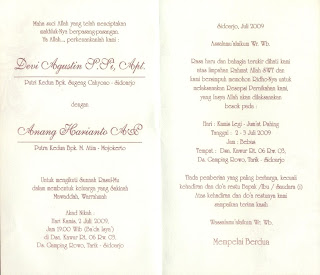 Maha suci Allah yang telah menciptakan
makhluk-Nya berpasang-pasangan.
Ya Allah... perkenankanlah kami :
Devi Agustin S.Si, Apt.
Putri Kedua Bpk. Sugeng Cahyono - Sidoarjo
dengan
Anang Harianto
Putra Kedua Bpk. M. - Mojokerto
Untuk mengikuti Sunnah Rasul-Mu
dalam membentuk keluarga yang Sakinah
Mawaddah, Warrahmah
Akad Nikah :
Hari Kamis, 2 Juli 2009,
Jam 19.00 WIB (Ba'da Isya')
di Dsn. Kawur Rt. 06 Rw. 03,
Ds. Gamping Rowo, Tarik - Sidoarjo
Sidoarjo, Juli 2009
Assalamu'alaikum Wr. Wb.
Rasa haru dan bahagia terukir dihati kami
atas limpahan Rahmat Allah SWT dan
kami bermohon Ridho-Nya untuk
melaksanakan Resepsi Pernikahan kami,
yang Insya Allah akan dilaksanakan
besok pada :
Hari : Kamis Legi - Jum'at Pahing
Tanggal : 2 - 3 Juli 2009
Jam : Bebas
Tempat : Dsn. Kawur Rt. 06 Rw. 03,
Ds. Gamping Rowo, Tarik - Sidoarjo
Tiada pemberian yang paling berharga, kecuali
kehadiran dan do'a restu Bapak /Ibu / Saudara (i)
Atas kehadiran dan do'a restunya kami
sampaikan terima kasih
Wassalamu'alaikum Wr. Wb.
Mempelai Berdua